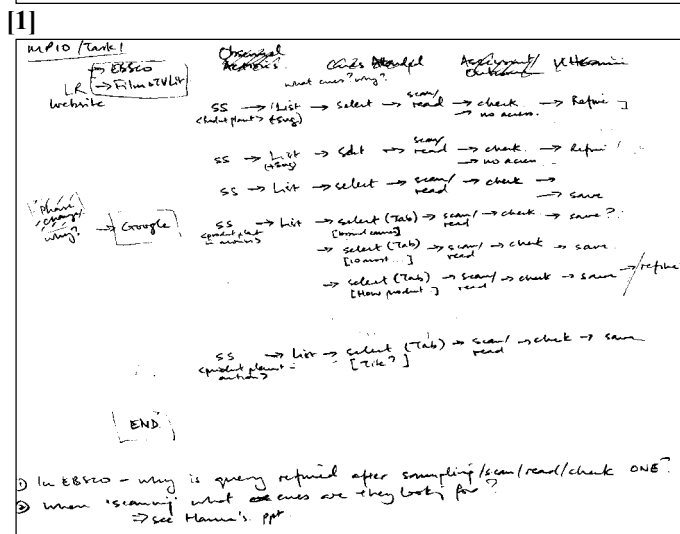 [1]
MP10/Task 1
Observed Actions Cues Attended Assessment/ Outcome
what cues? why?
LR website → EBSCO
→ Film & TV Lit
SS → List → select → scan/read → check → Refine
<product plant> (+Sug) → no access
SS → List → select → scan/read → check → Refine
(+Sug) → no access
SS → List → select → scan/read → check →
→ save
Phase change/ why? → Google SS → List → select (Tab) → scan/read → check → save?
→ select (Tab) → scan/read → check → save
[10 most...]
→ select (Tab) → scan/read → check → save → /refine
[How product]
SS → List → select (Tab) → scan/read → check → save
[Title?]
END
① In EBSCO - why is query refined after sampling/scan/read/check ONE?
② When 'scanning' what cues are they looking for?
⇒ see Hanna's ppt.